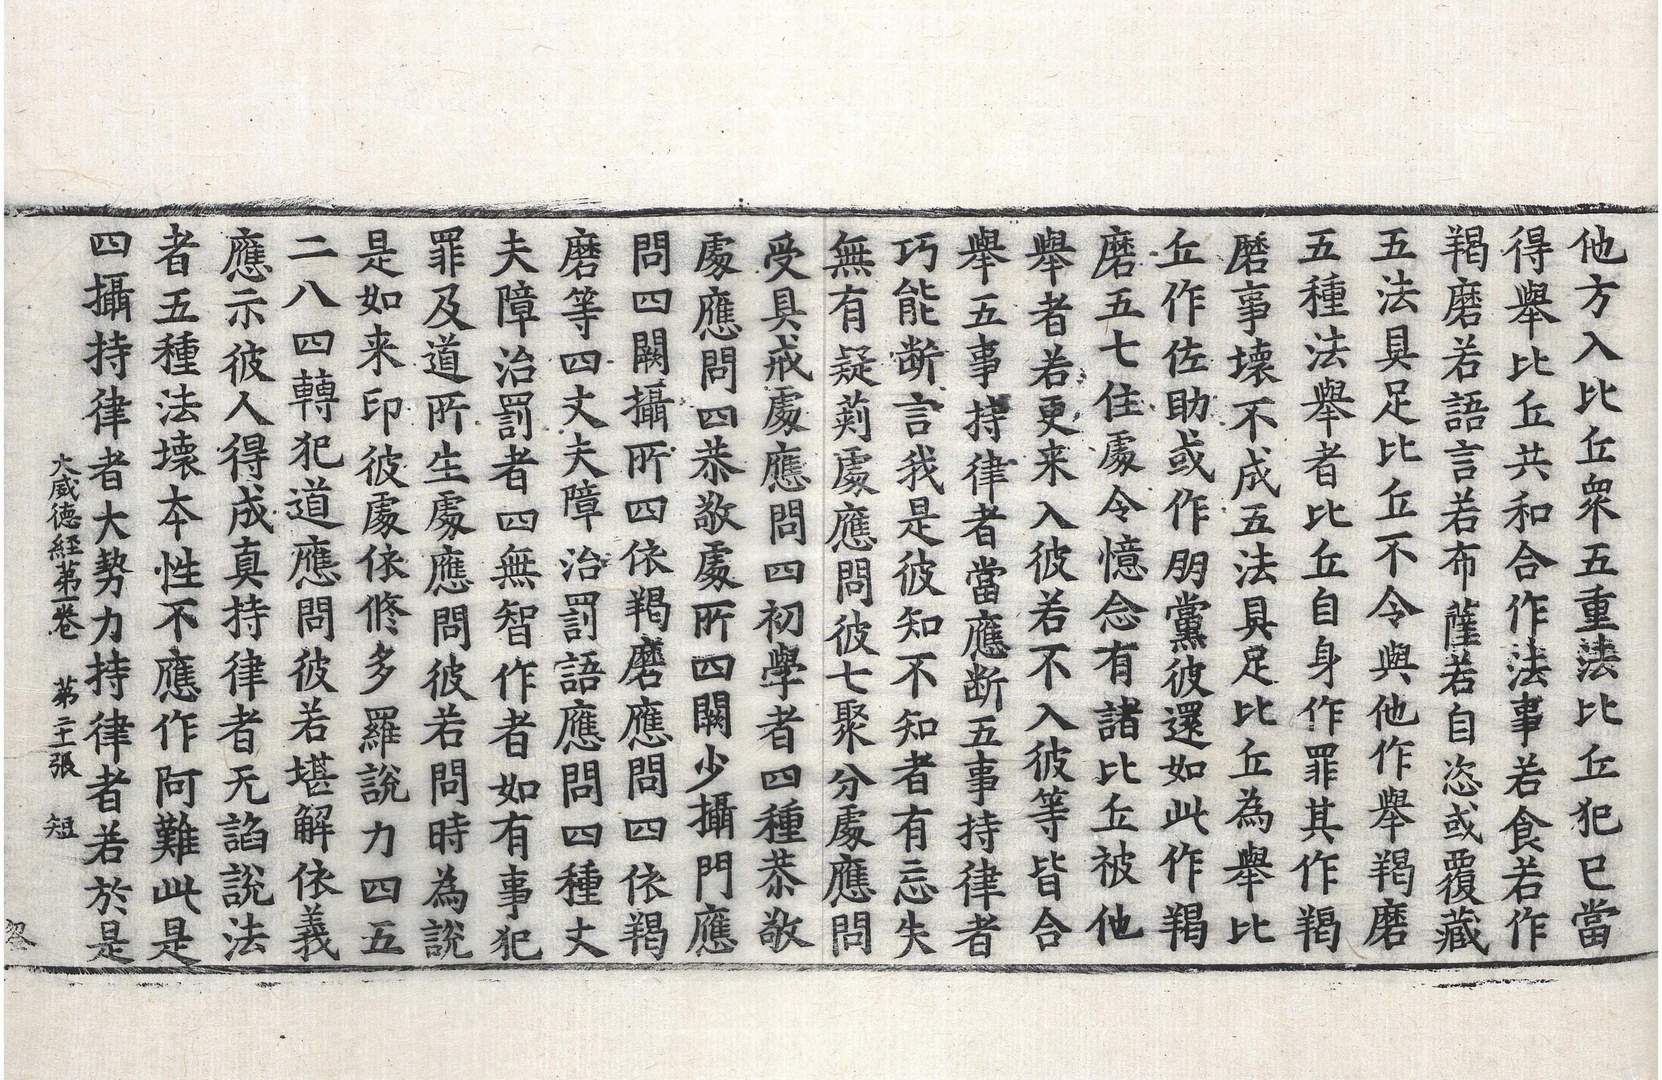 他方入比丘衆五重法比丘犯已當
得舉比丘共和合作法事若食若作
羯磨若語言若布薩若自恣或覆藏
五法具足比丘不令與他作舉羯磨
五種法舉者比丘自身作罪其作羯
磨事壞不成五法具足比丘為舉比
丘作佐助或作朋黨彼還如此作羯
磨五七住處令憶念有諸比丘被他
舉者若更来入彼若不入彼等皆合
舉五事持律者當應断五事持律者
巧能断言我是彼知不知者有忘失
無有疑莿處應問彼七聚分處應問
受具戒處應問四初學者四種恭敬
處應問四恭敬處所四闕少攝門應
問四闕攝所四依羯磨應問四依羯
磨等四丈夫障治罰語應問四種丈
夫障治罰者四無智作者如有事犯
罪及道所生處應問彼若問時為說
是如来印彼處依修多羅說力四五
二八四轉犯道應問彼若堪解依義
應示彼人得成真持律者无諂說法
者五種法壞本性不應作阿難此是
四攝持律者大勢力持律者若於是
大威德経第一卷　第二十張　短